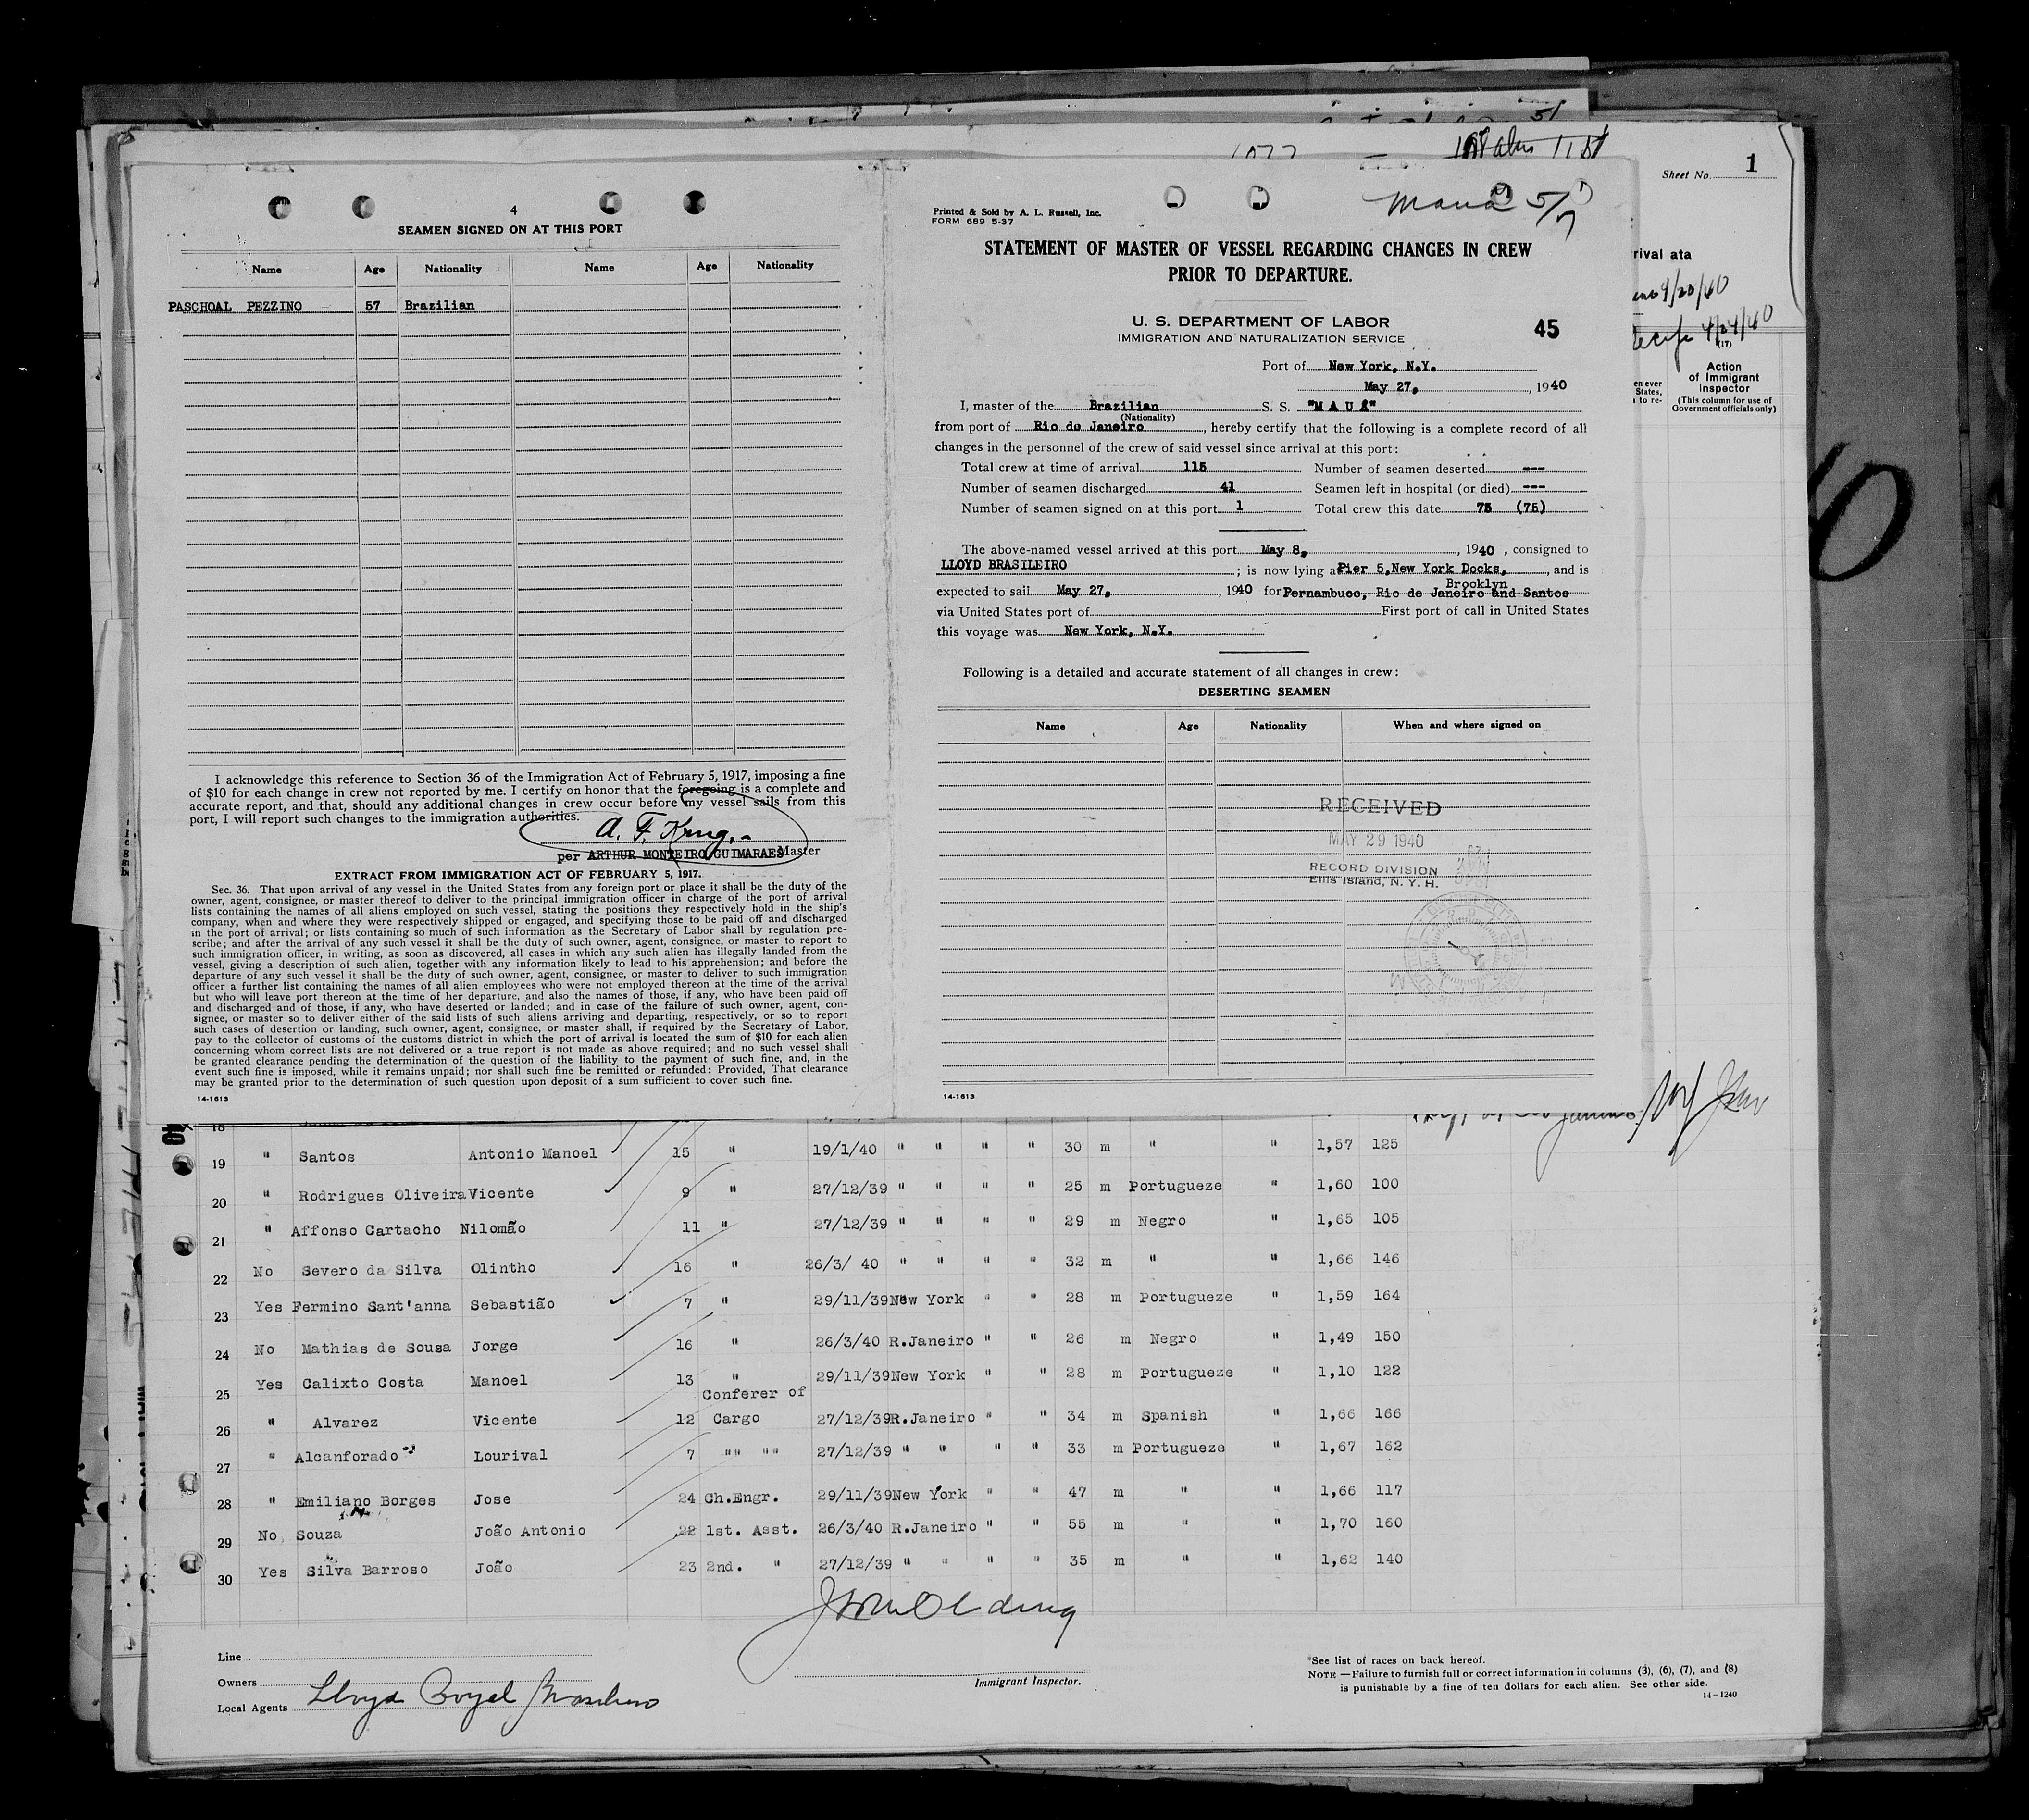 Sheet No. 1
4
SEAMEN SIGNED ON AT THIS PORT
Name Age Nationality Name Age Nationality
PASCHOAL PEZZINO 57 Brazilian
I acknowledge this reference to Section 36 of the Immigration Act of February 5, 1917, imposing a fine
of $10 for each change in crew not reported by me. I certify on honor that the foregoing is a complete and
accurate report, and that, should any additional changes in crew occur before my vessel sails from this
port, I will report such changes to the immigration authorities.
A. F. Krug.
per ARTHUR MONTEIRO GUIMARAES Master
EXTRACT FROM IMMIGRATION ACT OF FEBRUARY 5, 1917.
Sec. 36. That upon arrival of any vessel in the United States from any foreign port or place it shall be the duty of the
owner, agent, consignee, or master thereof to deliver to the principal immigration officer in charge of the port of arrival
lists containing the names of all aliens employed on such vessel, stating the positions they respectively hold in the ship's
company, when and where they were respectively shipped or engaged, and specifying those to be paid off and discharged
in the port of arrival; or lists containing so much of such information as the Secretary of Labor shall by regulation pre-
scribe; and after the arrival of any such vessel it shall be the duty of such owner, agent, consignee, or master to report to
such immigration officer, in writing, as soon as discovered, all cases in which any such alien has illegally landed from the
vessel, giving a description of such alien, together with any information likely to lead to his apprehension; and before the
departure of any such vessel it shall be the duty of such owner, agent, consignee, or master to deliver to such immigration
officer a further list containing the names of all alien employees who were not employed thereon at the time of the arrival
but who will leave port thereon at the time of her departure, and also the names of those, if any, who have been paid off
and discharged and of those, if any, who have deserted or landed; and in case of the failure of such owner, agent, con-
signee, or master so to deliver either of the said lists of such aliens arriving and departing, respectively, or so to report
such cases of desertion or landing, such owner, agent, consignee, or master shall, if required by the Secretary of Labor,
pay to the collector of customs of the customs district in which the port of arrival is located the sum of $10 for each alien
concerning whom correct lists are not delivered or a true report is not made as above required; and no such vessel shall
be granted clearance pending the determination of the question of the liability to the payment of such fine, and, in the
event such fine is imposed, while it remains unpaid; nor shall such fine be remitted or refunded: Provided, That clearance
may be granted prior to the determination of such question upon deposit of a sum sufficient to cover such fine.
14-1613
Mauá 5/7
Printed & Sold by A. L. Russell, Inc.
FORM 689 5-37
STATEMENT OF MASTER OF VESSEL REGARDING CHANGES IN CREW
PRIOR TO DEPARTURE.
U. S. DEPARTMENT OF LABOR 45
IMMIGRATION AND NATURALIZATION SERVICE
Port of New York, N.Y.
May 27, , 1940
I, master of the Brazilian S. S. "M A U Á"
(Nationality)
from port of Rio de Janeiro , hereby certify that the following is a complete record of all
changes in the personnel of the crew of said vessel since arrival at this port:
Total crew at time of arrival 115 Number of seamen deserted ---
Number of seamen discharged 41 Seamen left in hospital (or died) ---
Number of seamen signed on at this port 1 Total crew this date 75 (75)
The above-named vessel arrived at this port May 8, , 1940 , consigned to
LLOYD BRASILEIRO ; is now lying at Pier 5,New York Docks, , and is
Brooklyn
expected to sail May 27, , 1940 for Pernambuco, Rio de Janeiro and Santos
via United States port of First port of call in United States
this voyage was New York, N.Y.
Following is a detailed and accurate statement of all changes in crew:
DESERTING SEAMEN
Name Age Nationality When and where signed on
RECEIVED
MAY 29 1940
RECORD DIVISION
Ellis Island, N. Y. H.
14-1613
rival ata
4/20/40
4/24/40
(17)
Action
of Immigrant
Inspector
(This column for use of
Government officials only)
en ever
States,
to re-
18
19 " Santos Antonio Manoel 15 " 19/1/40 " " " " 30 m " " 1,57 125
20 " Rodrigues Oliveira Vicente 9 " 27/12/39 " " " " 25 m Portugueze " 1,60 100
21 " Affonso Cartacho Nilomão 11 " 27/12/39 " " " " 29 m Negro " 1,65 105
22 No Severo da Silva Olintho 16 " 26/3/ 40 " " " " 32 m " " 1,66 146
23 Yes Fermino Sant'anna Sebastião 7 " 29/11/39 New York " " 28 m Portugueze " 1,59 164
24 No Mathias de Sousa Jorge 16 " 26/3/40 R.Janeiro " " 26 m Negro " 1,49 150
25 Yes Calixto Costa Manoel 13 " 29/11/39 New York " " 28 m Portugueze " 1,10 122
Conferer of
26 " Alvarez Vicente 12 Cargo 27/12/39 R.Janeiro " " 34 m Spanish " 1,66 166
27 " Alcanforado Lourival 7 "" "" 27/12/39 " " " " 33 m Portugueze " 1,67 162
28 " Emiliano Borges Jose 24 Ch.Engr. 29/11/39 New York " " 47 m " " 1,66 117
29 No Souza João Antonio 22 1st. Asst. 26/3/40 R.Janeiro " " 55 m " " 1,70 160
30 Yes Silva Barroso João 23 2nd. " 27/12/39 " " " " 35 m " " 1,62 140
Line
Owners
Local Agents Lloyd Royal Brasileiro
Immigrant Inspector.
*See list of races on back hereof.
NOTE—Failure to furnish full or correct information in columns (3), (6), (7), and (8)
is punishable by a fine of ten dollars for each alien. See other side.
14-1240